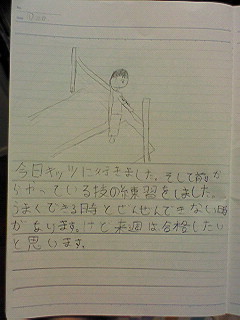 今日キッツに行きました。そして前か
らやっている技の練習をしました。
うまくできる時とぜんぜんできない時
があります。けど来週は合格したい
と思います。